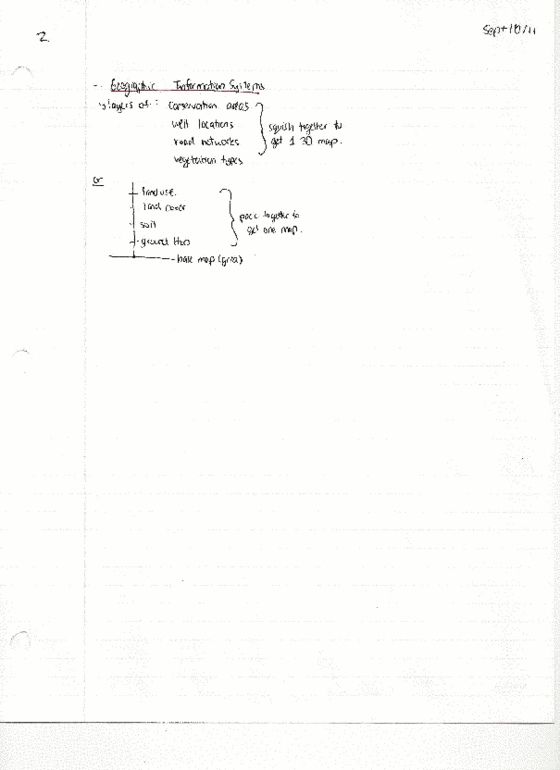 2.
Sept 18/11
- Geographic Information Systems
↳ layers of: conservation areas
well locations
road networks
vegetation types
squish together to
get 1 3D map.
or
- land use.
- land cover
- soil
- ground
- base map (area)
together to
get one map.